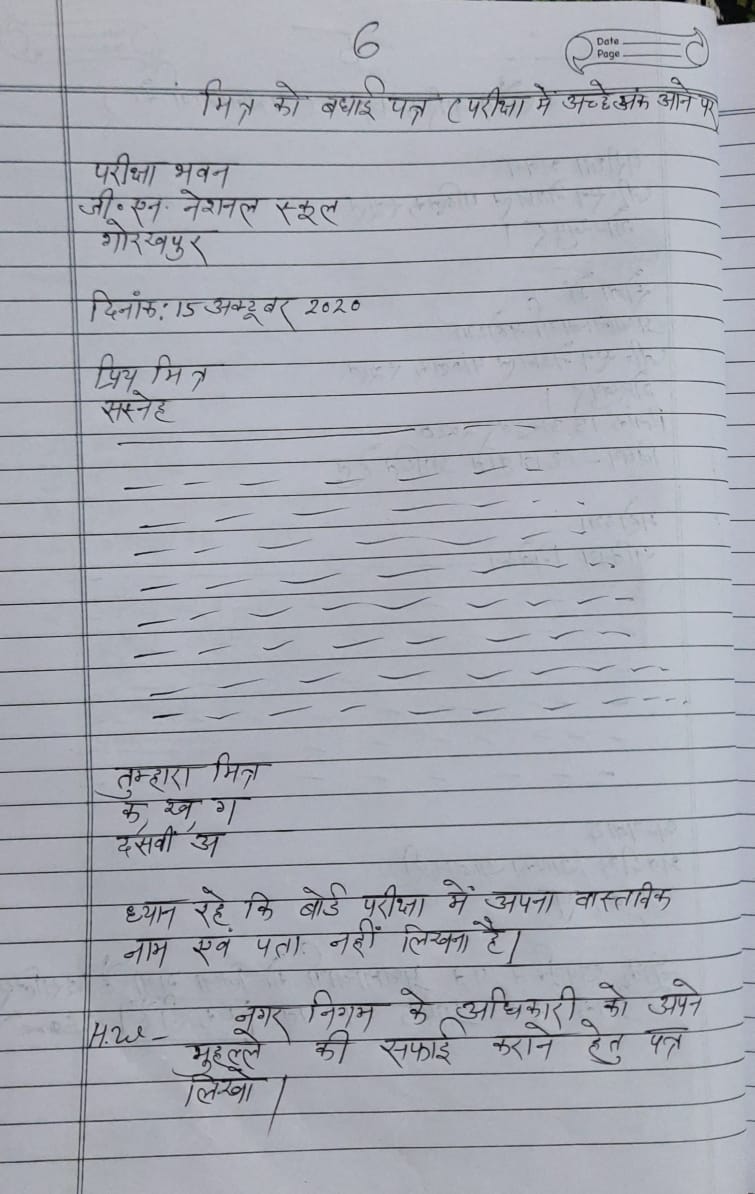 6
Date
Page
मित्र को बधाई पत्र (परीक्षा में अच्छे अंक आने पर
परीक्षा भवन
जी॰ एन॰ नेशनल स्कूल
गोरखपुर
दिनांक: 15 अक्टूबर 2020
प्रिय मित्र
सस्नेह
तुम्हारा मित्र
क, ख, ग
दसवीं अ
ध्यान रहे कि बोर्ड परीक्षा में अपना वास्तविक
नाम एवं पता नहीं लिखना है।
H.W- नगर निगम के अधिकारी को अपने
मुहल्ले की सफाई कराने हेतु पत्र
लिखो।